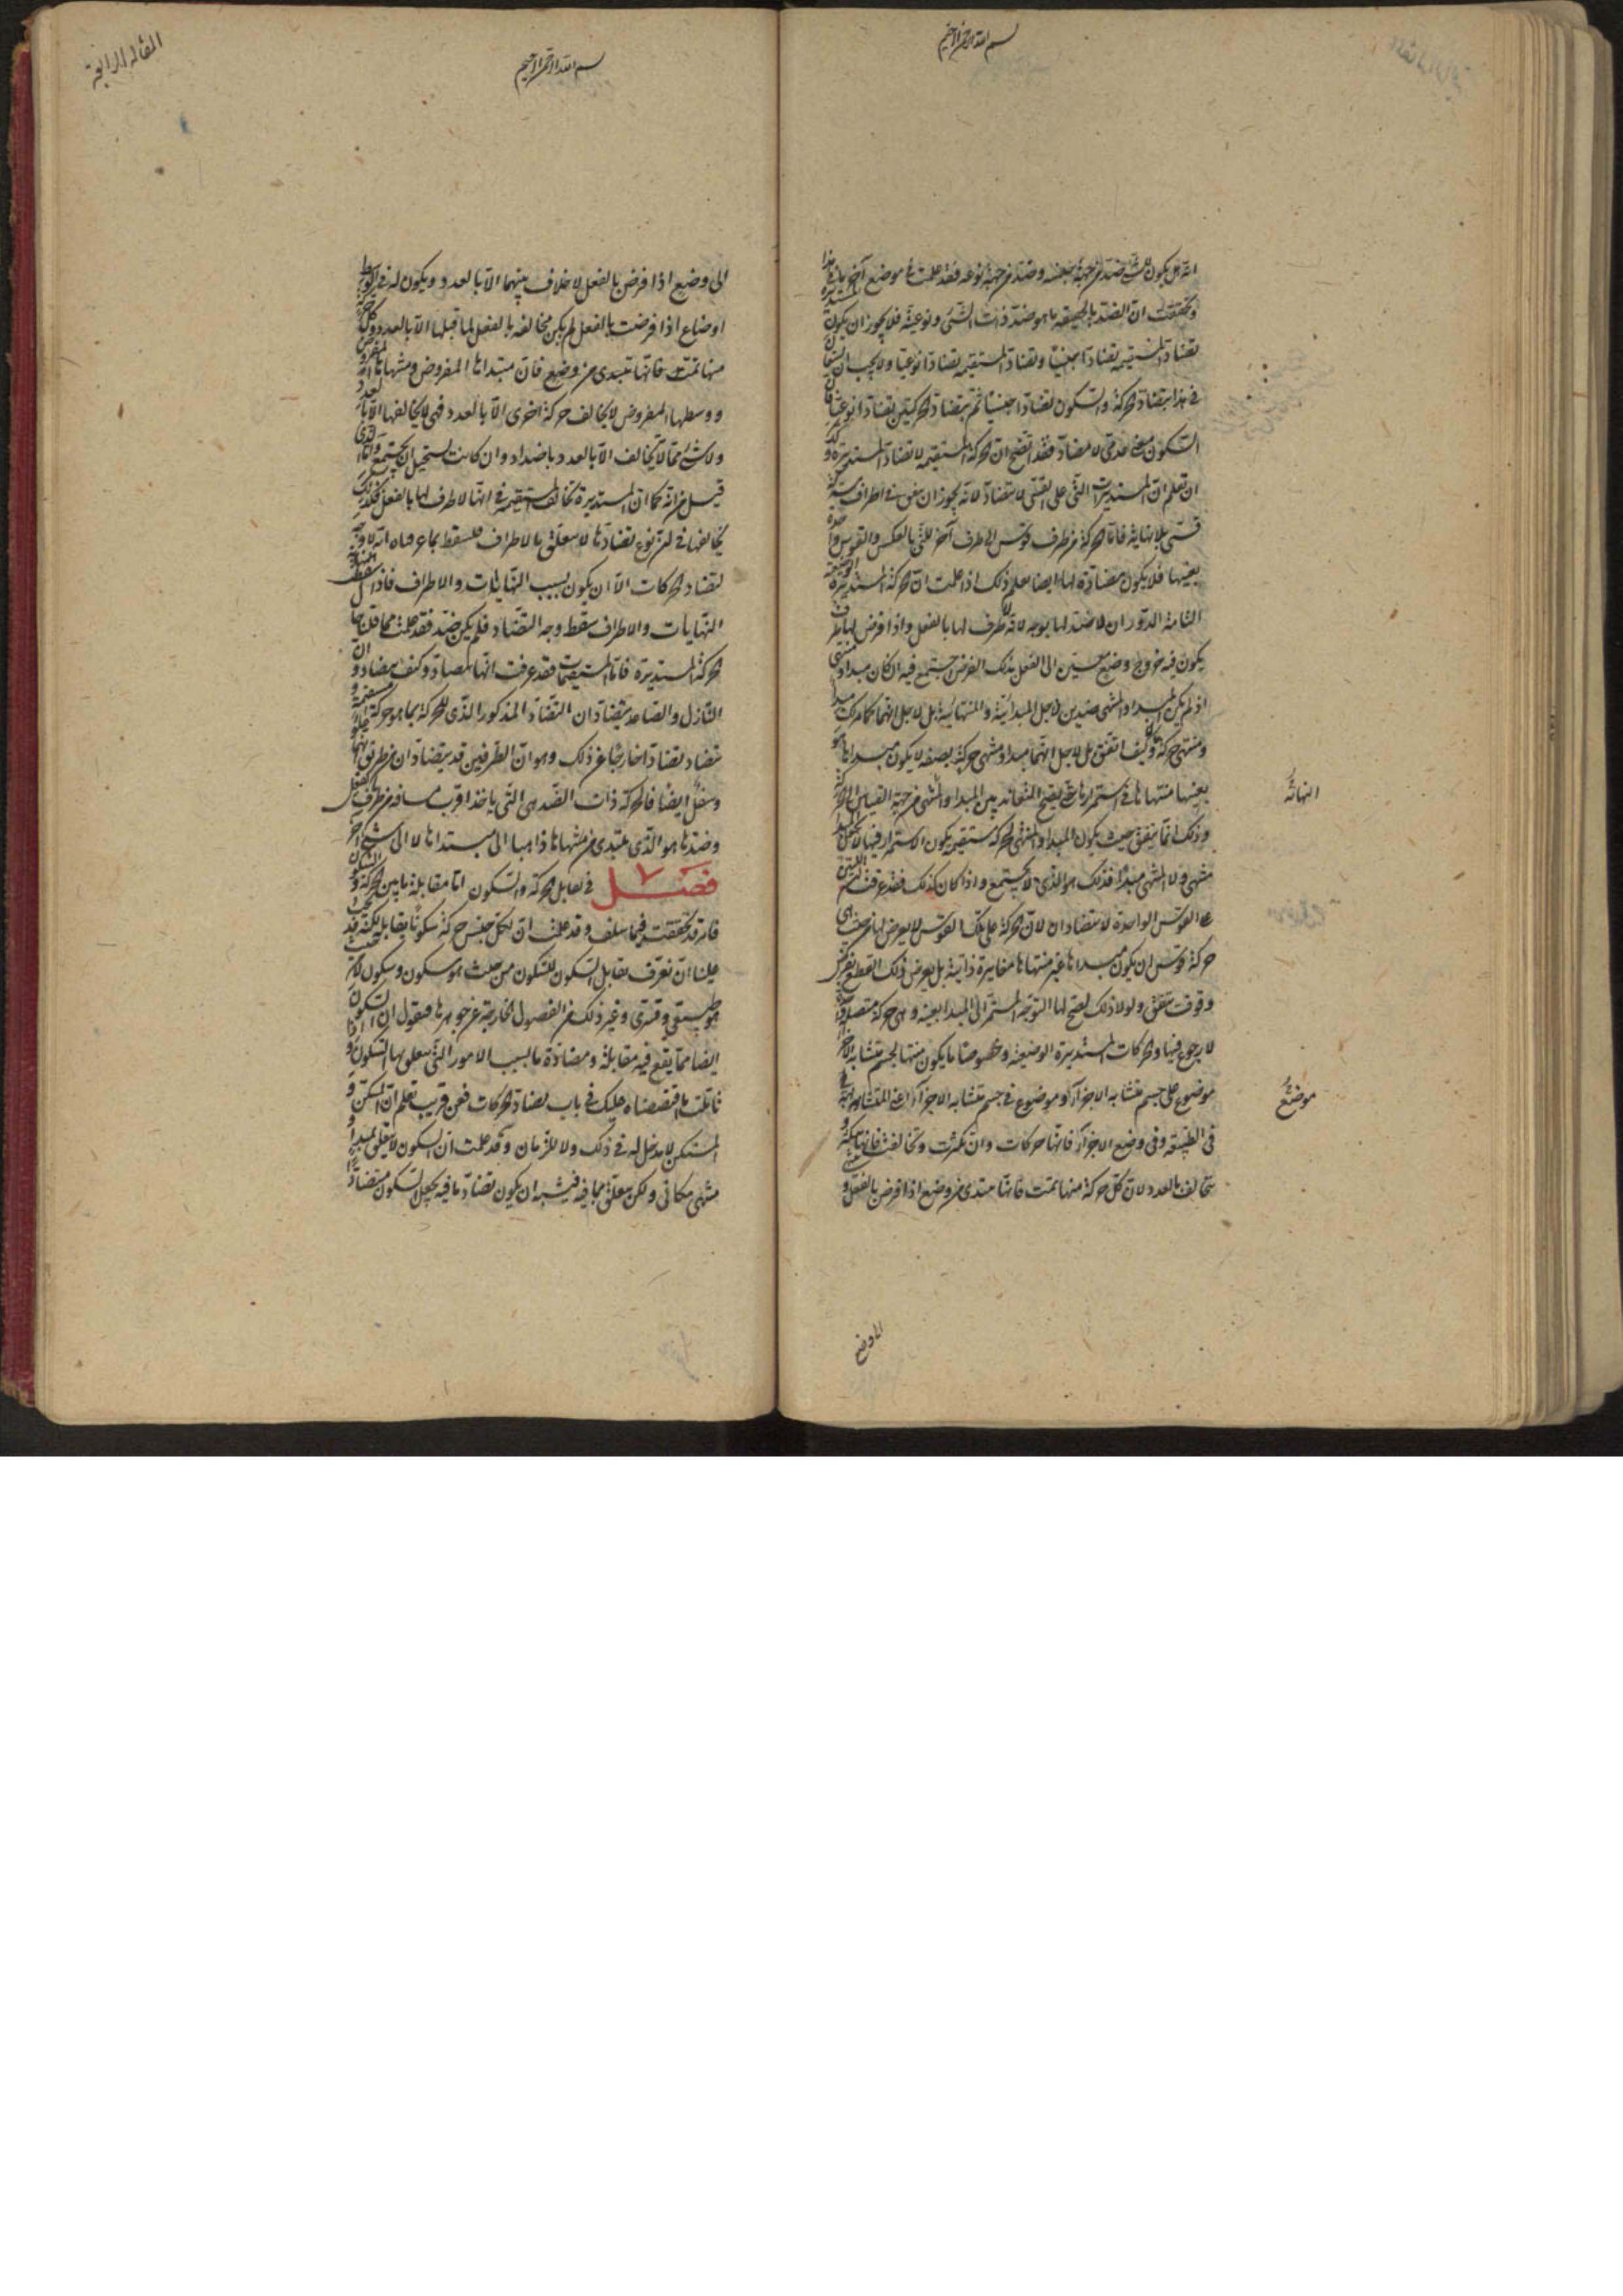 بسم الله الرحمن الرحيم
انه هل يكون للشئ ضد من جهة جنسه وضد من جهة نوعه فقد علمت فى موضع آخر ما فى هذا
وتحققت ان الضد بالحقيقه ما هو ضد ذات الشئ ونوعيته فلا يجوز ان يكون المستديرة
تضاد المستقيمه تضادا جنسيا وتضاد المستقيمه تضادا نوعيا ولا يجب ان
فى هذا بتضاد الحركة والسكون تضادا جنسيا ثم بتضاد الحركتين تضادا نوعيا فان
السكون معنى عدمى لا مضاد فقد اتضح ان الحركة المستقيمه لا تضاد المستديرة و
ان تعلم ان المستديرات التى على القسى لا تتضاد لانه يجوز ان يتفق فى اطراف مشتركة
قسى بلا نهاية فاما الحركة من طرف قوس الى طرف آخر للتى بالعكس والقوس واحدة
بعينها فلا يكون مضادة لها ايضا يعلم ذلك اذا علمت ان الحركة المستديرة الوضعية
التامة الدوران لا ضد لها بوجه لانه لا طرف لها بالفعل واذا فرض لها طرف
يكون فيه خروج وضع معين الى الفعل بذلك الفرض اجتمع فيه ان كان مبدا و منتهى
اذ لم يكن المبدا والمنتهى ضدين لاجل المبدائية والمنتهائية بل لاجل انهما كما مر لك مبدا
ومنتهى حركة كيف اتفق بل لاجل انهما مبدا ومنتهى حركة بصفه لا يكون مبداها هو
بعينها منتهاها فى استمرارها حتى يصح التعاند بين المبدا والمنتهى من جهة القياس الى الحركة
وذلك انما يتفق حيث يكون المبدا والمنتهى لحركة مستقيمه يكون الاستمرار فيها لا يجعل المبدا
منتهى ولا المنتهى مبدا فذلك هو الذى لا يجتمع واذا كان كذلك فقد عرفت ان اللتين
على القوس الواحدة لا تتضادان لان الحركة على تلك القوس لا يعرض لها من حيث هى
حركة قوس ان يكون مبداها غير منتهاها مغايرة ذاتية بل يعرض ذلك لقطع يعرض
وقوف يتفق ولولا ذلك لصح لها التوجه المستمر الى المبدا بعينه وهى حركة متصلة واحدة
لا رجوع فيها والحركات المستديرة الوضعية وخصوصا ما يكون منها لجسم متشابه الاجزآ
موضوع على جسم متشابه الاجزآ او موضوع فى جسم متشابه الاجزآ اعنى المتشابه
فى الطبيعه وفى وضع الاجزآ فانها حركات وان تكثرت وتخالفت فانها
تتخالف بالعدد لان كل حركة منها تمت فانها تبتدى من وضع اذا فرض بالفعل و
النهائيّة
موضعُ
الى وضع
المقاله الرابعة
بسم الله الرحمن الرحيم
الى وضع اذا فرض بالفعل لا خلاف بينهما الا بالعدد ويكون له فى التوسط
اوضاع اذا فرضت بالفعل لم يكن مخالفه بالفعل لما قبلها الا بالعدد وكل حركة
منها تمت فانها تبتدى من وضع فان مبتداها المفروض ومنتهاها المفروض
ووسطها المفروض لا يخالف حركة اخرى الا بالعدد فهى لا تخالفها الا بالعدد
ولا شئ مما لا يتخالف الا بالعدد باضداد وان كانت يستحيل ان يجتمع واما الذى
قيل من انه كما ان المستديرة تخالف المستقيمه فى انها لا طرف لها بالفعل فكذلك
يخالفها فى ان نوع تضادها لا يتعلق بالاطراف فيسقط بما عرفناه انه لا وجه
لتضاد الحركات الا ان يكون بسبب النهايات والاطراف فاذا سقط
النهايات والاطراف سقط وجه التضاد فلم يكن ضد فقد علمت مما قلنا حال
الحركة المستديرة فاما المستقيمات فقد عرفت انها تتضاد وكيف تتضاد و ان
النازل والصاعد يتضادان التضاد المذكور الذى للحركة بما هو حركة مستقيمه و
تتضاد تضادا خارجا عن ذلك وهو ان الطرفين قد يتضادان من طريق انهما علو
وسفل ايضا فالحركة ذات الضد هى التى ياخذ اقرب مسافه من طرف بالفعل
وضدها هو الذى تبتدى من منتهاها ذاهبا الى مبتداها لا الى شئ آخر
فصل ٧ فى تقابل الحركة والسكون اما مقابلة ما بين الحركة و السكون
فامر قد تحققته فيما سلف وقد علمت ان لكل جنس حركة سكونا يقابله لكنه قد يجب
علينا ان نعرف تقابل السكون للسكون من حيث هو سكون وسكون لا من حيث
هو طبيعى وقسرى وغير ذلك من الفصول الخارجة عن جوهرها فنقول ان السكون
ايضا مما يقع فيه مقابلة ومضادة ما بسبب الامور التى يتعلق بها السكون و اذا
تاملت ما اقتصصناه عليك فى باب تضاد الحركات فعن قريب تعلم ان المسكن و
المتسكن لا مدخل له فى ذلك ولا للزمان وقد علمت ان السكون لا يتعلق بمبدا و
منتهى مكانى ولكن يتعلق بما فيه فيشبه ان يكون تضاد ما فيه يجعل السكون متضادا